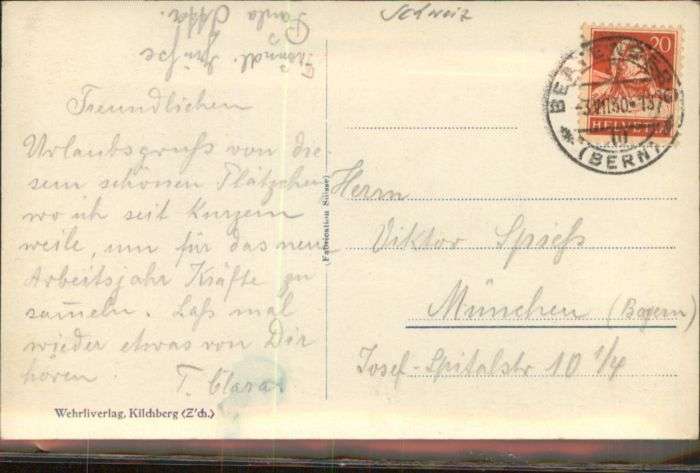 Schweiz
Freundl. Grüße
Paula
Freundlichen
Urlaubsgruß von die-
sem schönen Plätzchen
wo ich seit kurzem
weile, um für das neue
Arbeitsjahr Kräfte zu
sammeln. Laß mal
wieder etwas von Dir
hören.
T. Clara
Wehrliverlag, Kilchberg (Z'ch.)
(Fabrication Suisse)
20
HELVETIA
BEATENBERG
(BERN)
Herrn
Viktor Spieß
München (Bayern)
Josef-Spitalstr 10 1/4